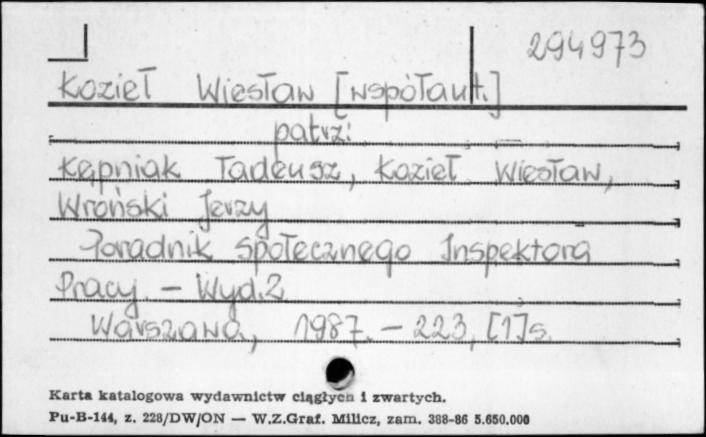 294973
Kozieł Wiesław [współaut.]
patrz:
Kępniak Tadeusz, Kozieł Wiesław,
Wroński Jerzy
Poradnik społecznego Inspektora
Pracy. - Wyd.2
Warszawa, 1987. - 223, [1]s.
Karta katalogowa wydawnictw ciągłych i zwartych.
Pu-B-144, z. 228/DW/ON — W.Z.Graf. Milicz, zam. 388-86 5.650.000